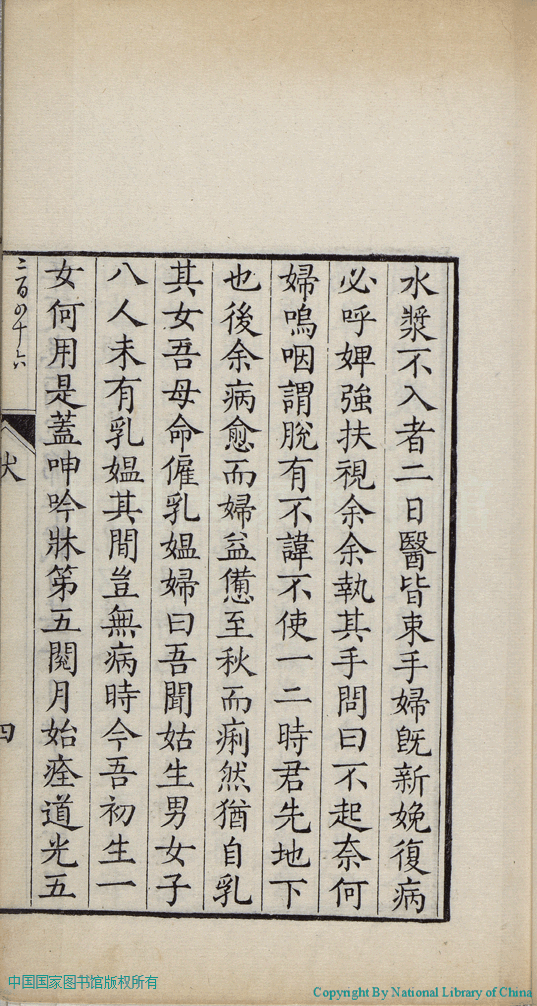 水漿不入者二日醫皆束手婦既新娩復病
必呼婢強扶視余余執其手問曰不起奈何
婦嗚咽謂脫有不諱不使一二時君先地下
也後余病愈而婦益憊至秋而痢然猶自乳
其女吾母命僱乳媼婦曰吾聞姑生男女子
八人未有乳媼其間豈無病時今吾初生一
女何用是蓋呻吟牀笫五閱月始痊道光五
二百四十六
四
中国国家图书馆版权所有
Copyright By National Library of China